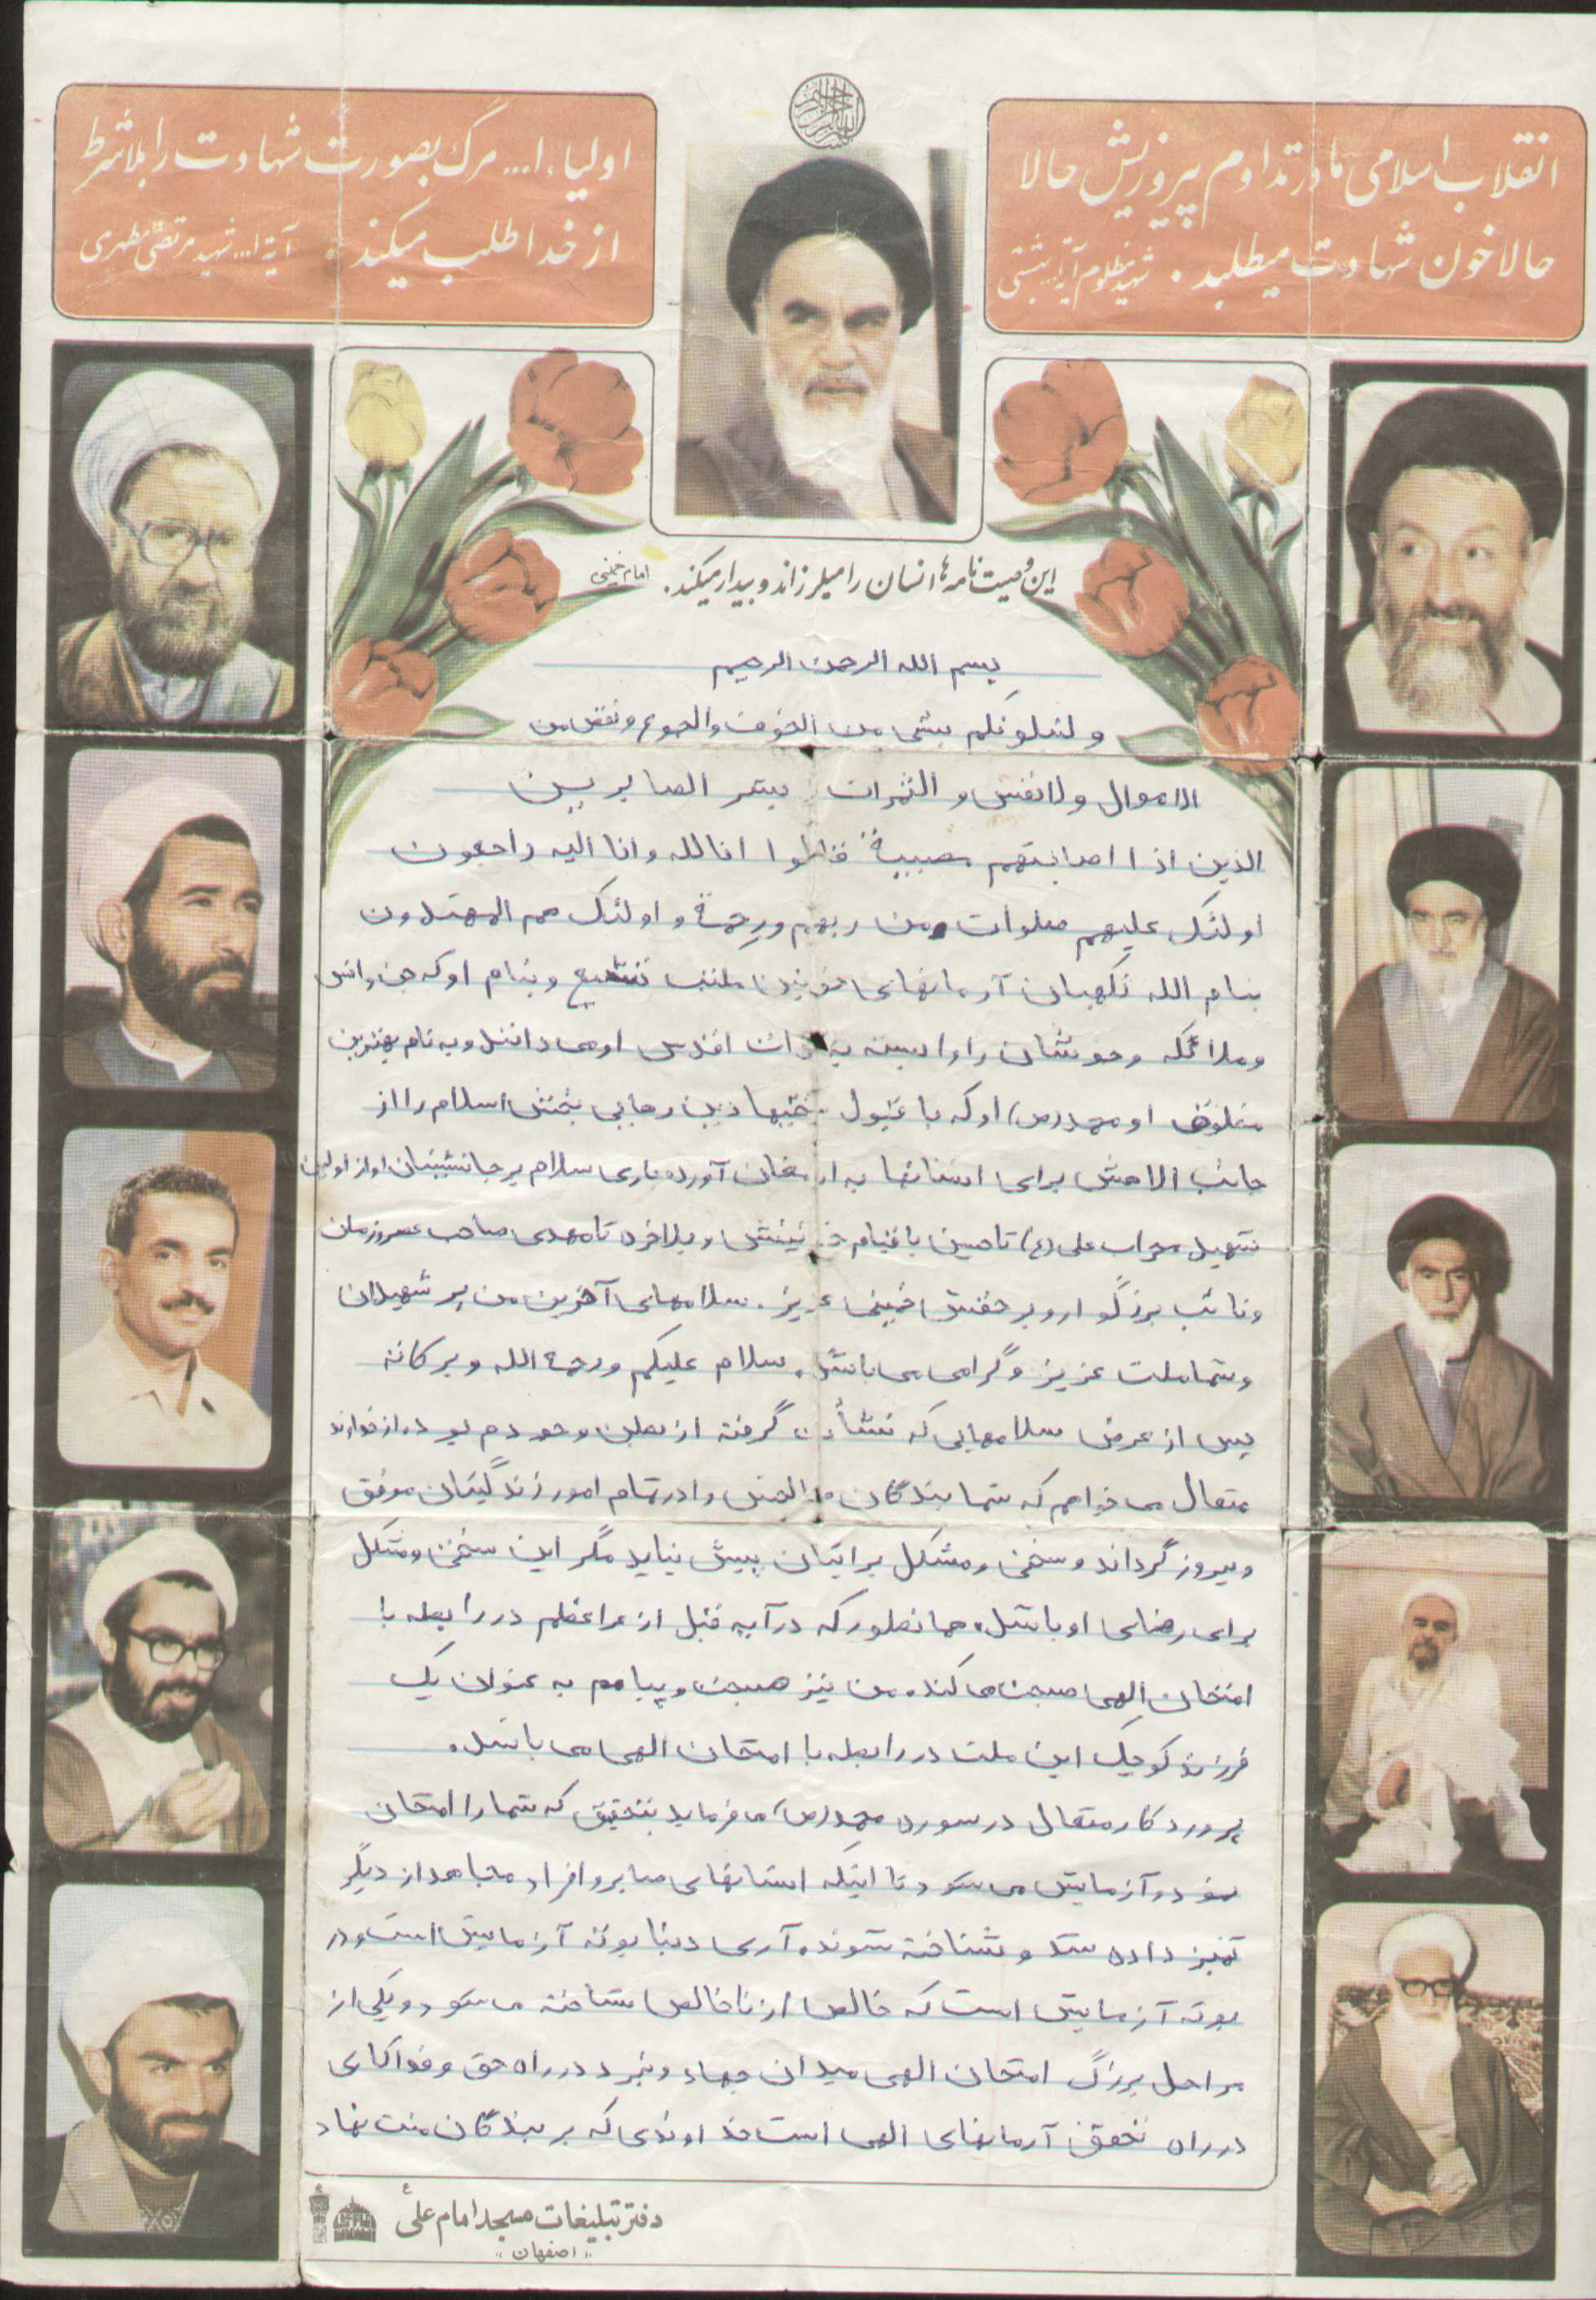 انقلاب اسلامی ما در تداوم پیروزیش حالا
حالا خون شهادت میطلبد. شهید مظلوم آیة... بهشتی
اولیاء ا... مرگ بصورت شهادت را بلاشرط
از خدا طلب میکند. آیة ا... شهید مرتضی مطهری
این وصیت نامه ها انسان را میلرزاند و بیدار میکند. امام خمینی
بسم الله الرحمن الرحیم
و لنبلونکم بشی من الخوف والجوع ونقص من
الاموال ولانفس و الثمرات بشر الصابرین
الذین اذا اصابتهم مصیبة قالوا انالله وانا الیه راجعون
اولئک علیهم صلوات من ربهم ورحمة و اولئک هم المهتدون
بنام الله نگهبان آرمانهای خونین ملت تشیع وبنام او که جن وانس
وملائکه وجودشان را وابسته به ذات اقدس او می دانند و به نام بهترین
مخلوق او محمد(ص) او که با قبول اسلام را از
جانب الاهش برای انسانها به ارمغان آورده آری سلام بر جانشینان او از اولین
شهید محراب علی (ع) تا حسین با قیام خونینش و بلاخره تا مهدی صاحب عصر و زمان
ونائب بزرگوار و بر حقش خمینی عزیز. سلامهای آخرین من بر شهیدان
وشما ملت عزیز و گرامی می باشد. سلام علیکم ورحمة الله وبرکاته
پس از عرض سلامهایی که نشأت گرفته از بطن وجودم بوده از خداوند
متعال می خواهم که شما بندگان را در تمام امور زندگیتان موفق
وپیروز گرداند و سختی و مشکل برایتان پیش نیاید مگر این سختی و مشکل
برای رضای او باشد. همانطور که در آیه قبل از در رابطه با
امتحان الهی صحبت می کند. من نیز صحبت و پیامم به عنوان یک
فرزند کوچک این ملت در رابطه با امتحان الهی می باشد.
پروردگار متعال در سوره محمد(ص) می فرماید بتحقیق که شما را امتحان
و آزمایش می شود تا اینکه انسانهای صابر و افراد مجاهد از دیگر
تمیز داده شد و شناخته شوند. آری دنیا بوته آزمایش است و در
بوته آزمایش است که خالص از ناخالص شناخته می شود و یکی از
مراحل بزرگ امتحان الهی میدان جهاد و نبرد در راه حق و فداکاری
در راه تحقق آرمانهای الهی است خداوندی که بر بندگان منت نهاد
دفتر تبلیغات مسجد امام علی ع
"اصفهان"